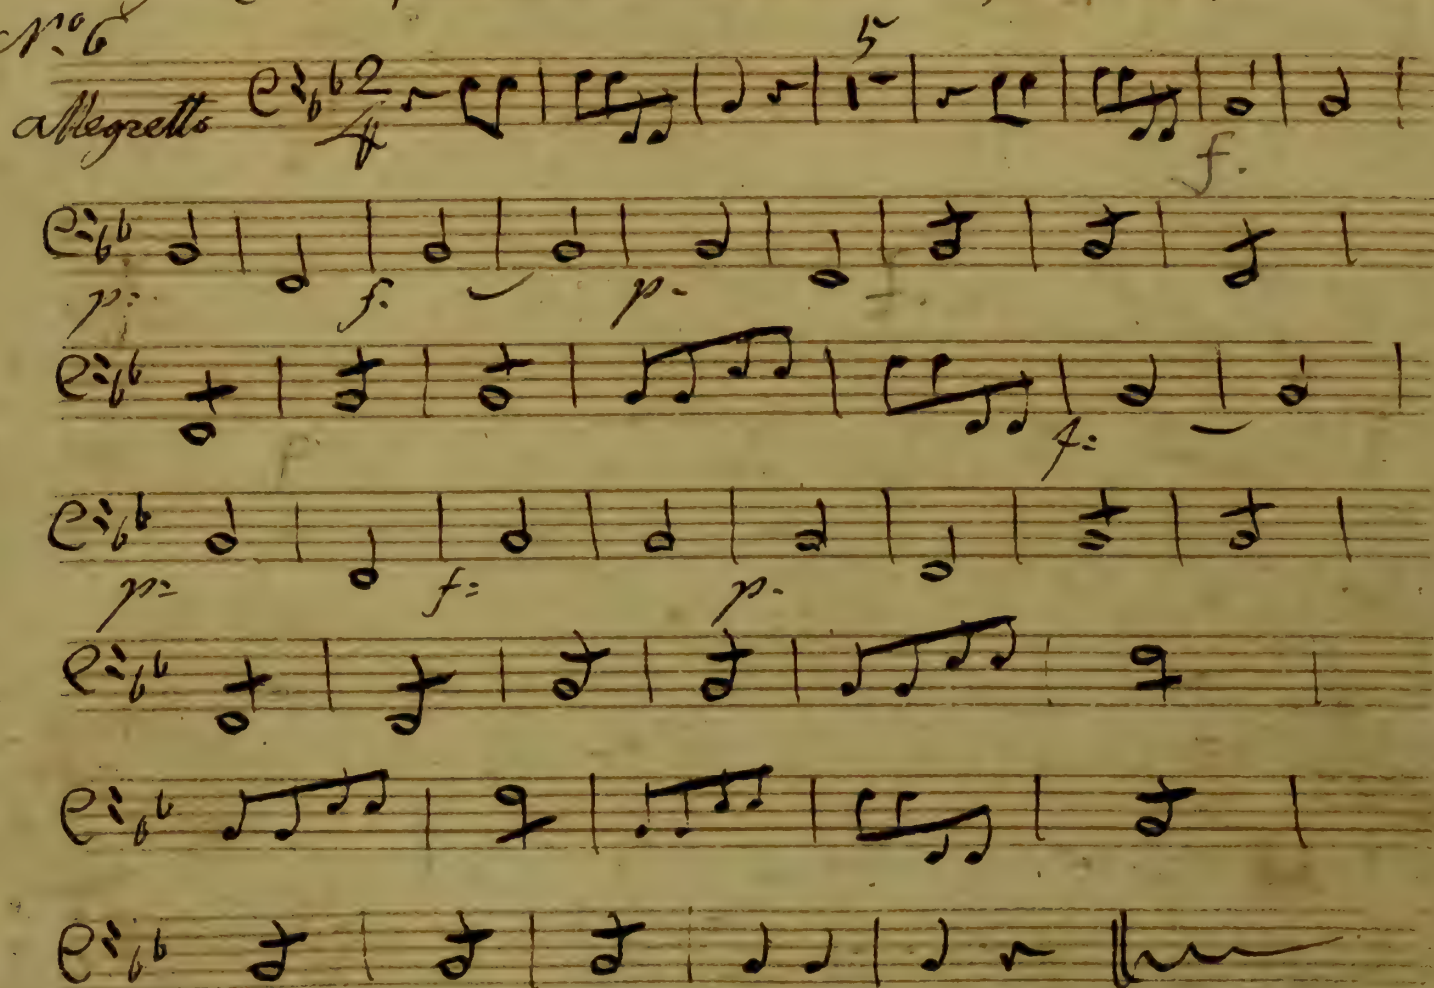 N.o 6
Allegretto 2/4 5
f.
p: f. p.
f:
p= f= p.